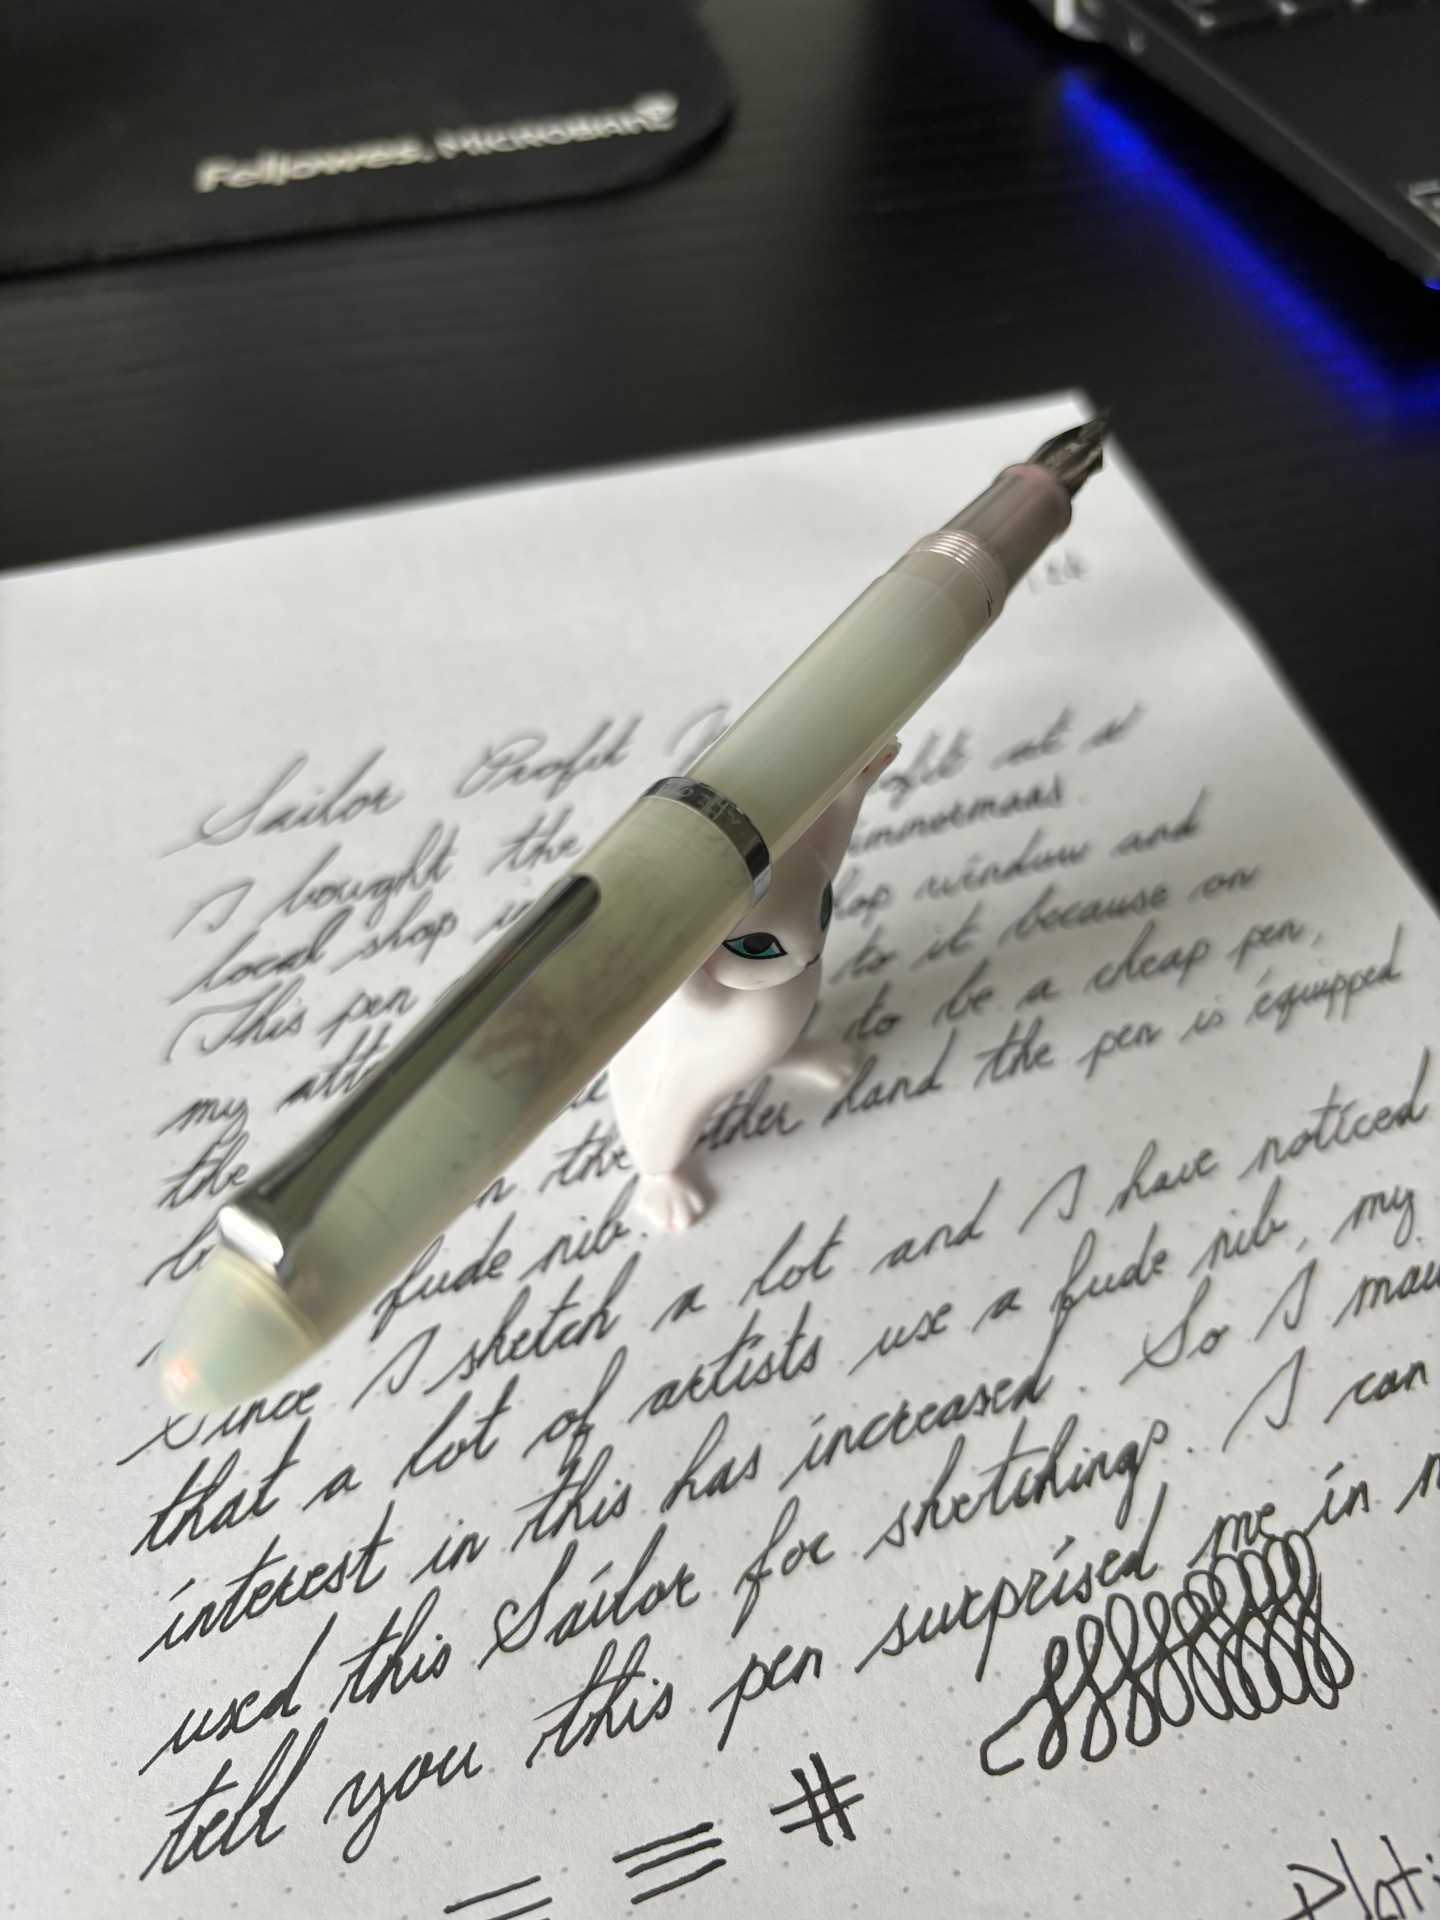 Fellowes. MICROBAN
Sailor Profit at a
I bought the immermans
local shop hop window and
This pen to it because on
my to be a cheap pen,
the n the other hand the pen is équipped
fude nib.
Since I sketch a lot and I have noticed
that a lot of artists use a fude nib, my
interest in this has increased. So I
used this Sailor for sketching. I can
tell you this pen surprised me in
#
Plati